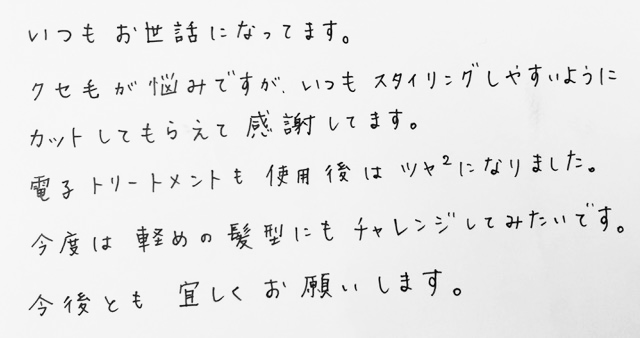 いつもお世話になってます。
クセ毛が悩みですが、いつもスタイリングしやすいように
カットしてもらえて感謝してます。
電子トリートメントも使用後はツヤ²になりました。
今度は軽めの髪型にもチャレンジしてみたいです。
今後とも宜しくお願いします。